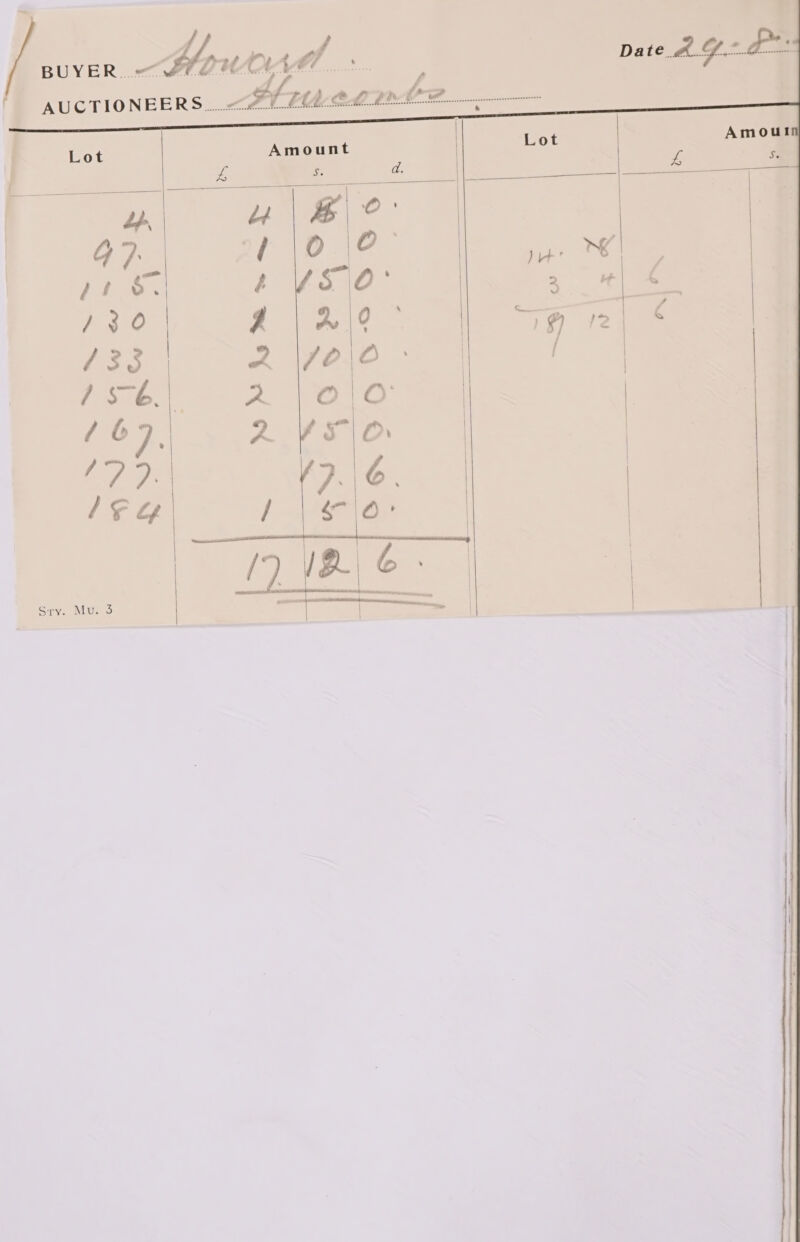 BUYER Howard. Date 29-8
AUCTIONEERS Hurcombe
Lot Amount Lot Amoun
£ s. d. £ s.
4. 4 0.
97. 1 0 0
115. 1 15 0. 14.
130 2 0 3 4 6
133 2 10 0 17 12 6
156. 2 0 0
167. 2 15 0.
177. 17. 6.
184 1 5 0.
17 12 6.
Sry. Mu. 3